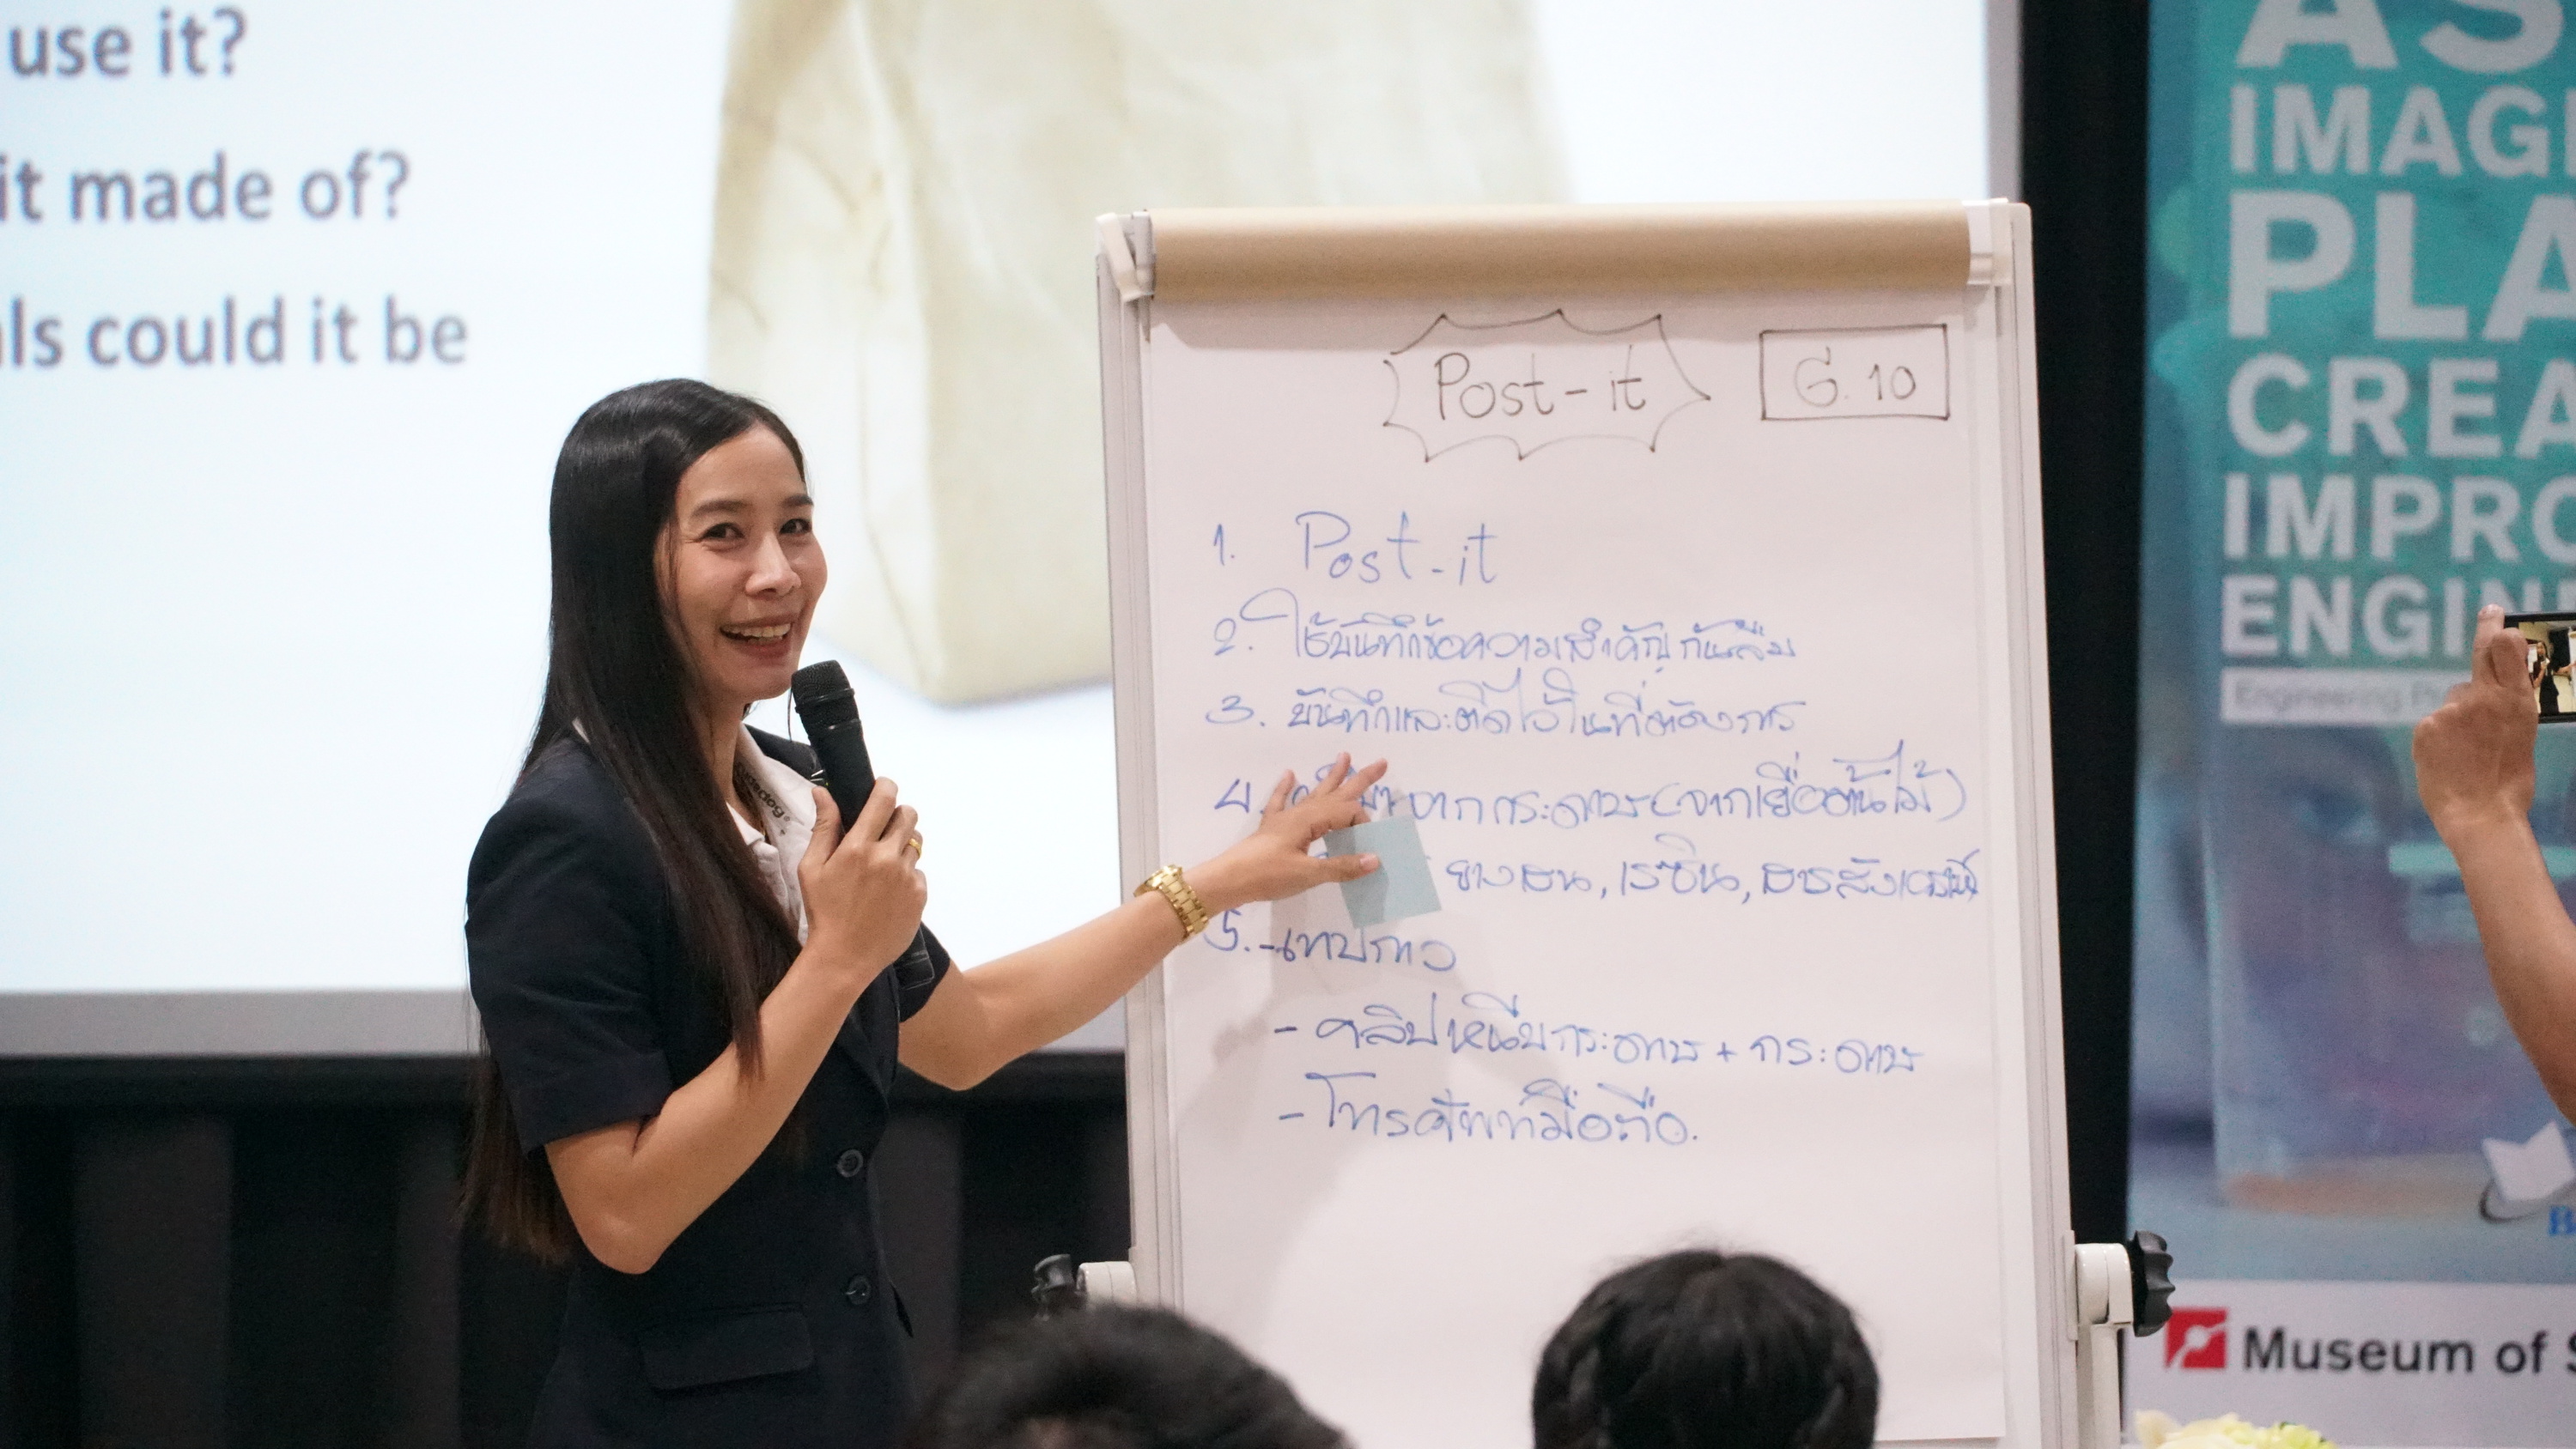 use it?
it made of?
ls could it be
Post-it
G.10
1. Post-it
2. ใช้บันทึกข้อความสำคัญ กันลืม
3. บันทึกและติดไว้ในที่ต้องการ
4. จากกระดาษ (จากเยื่อต้นไม้)
ยางสน, เรซิน, สารสังเคราะห์
5. - เทปกาว
- คลิปหนีบกระดาษ + กระดาษ
- โทรศัพท์มือถือ.
AS
IMAG
PLA
CREA
IMPRO
ENGIN
Engineering
Museum of S
B